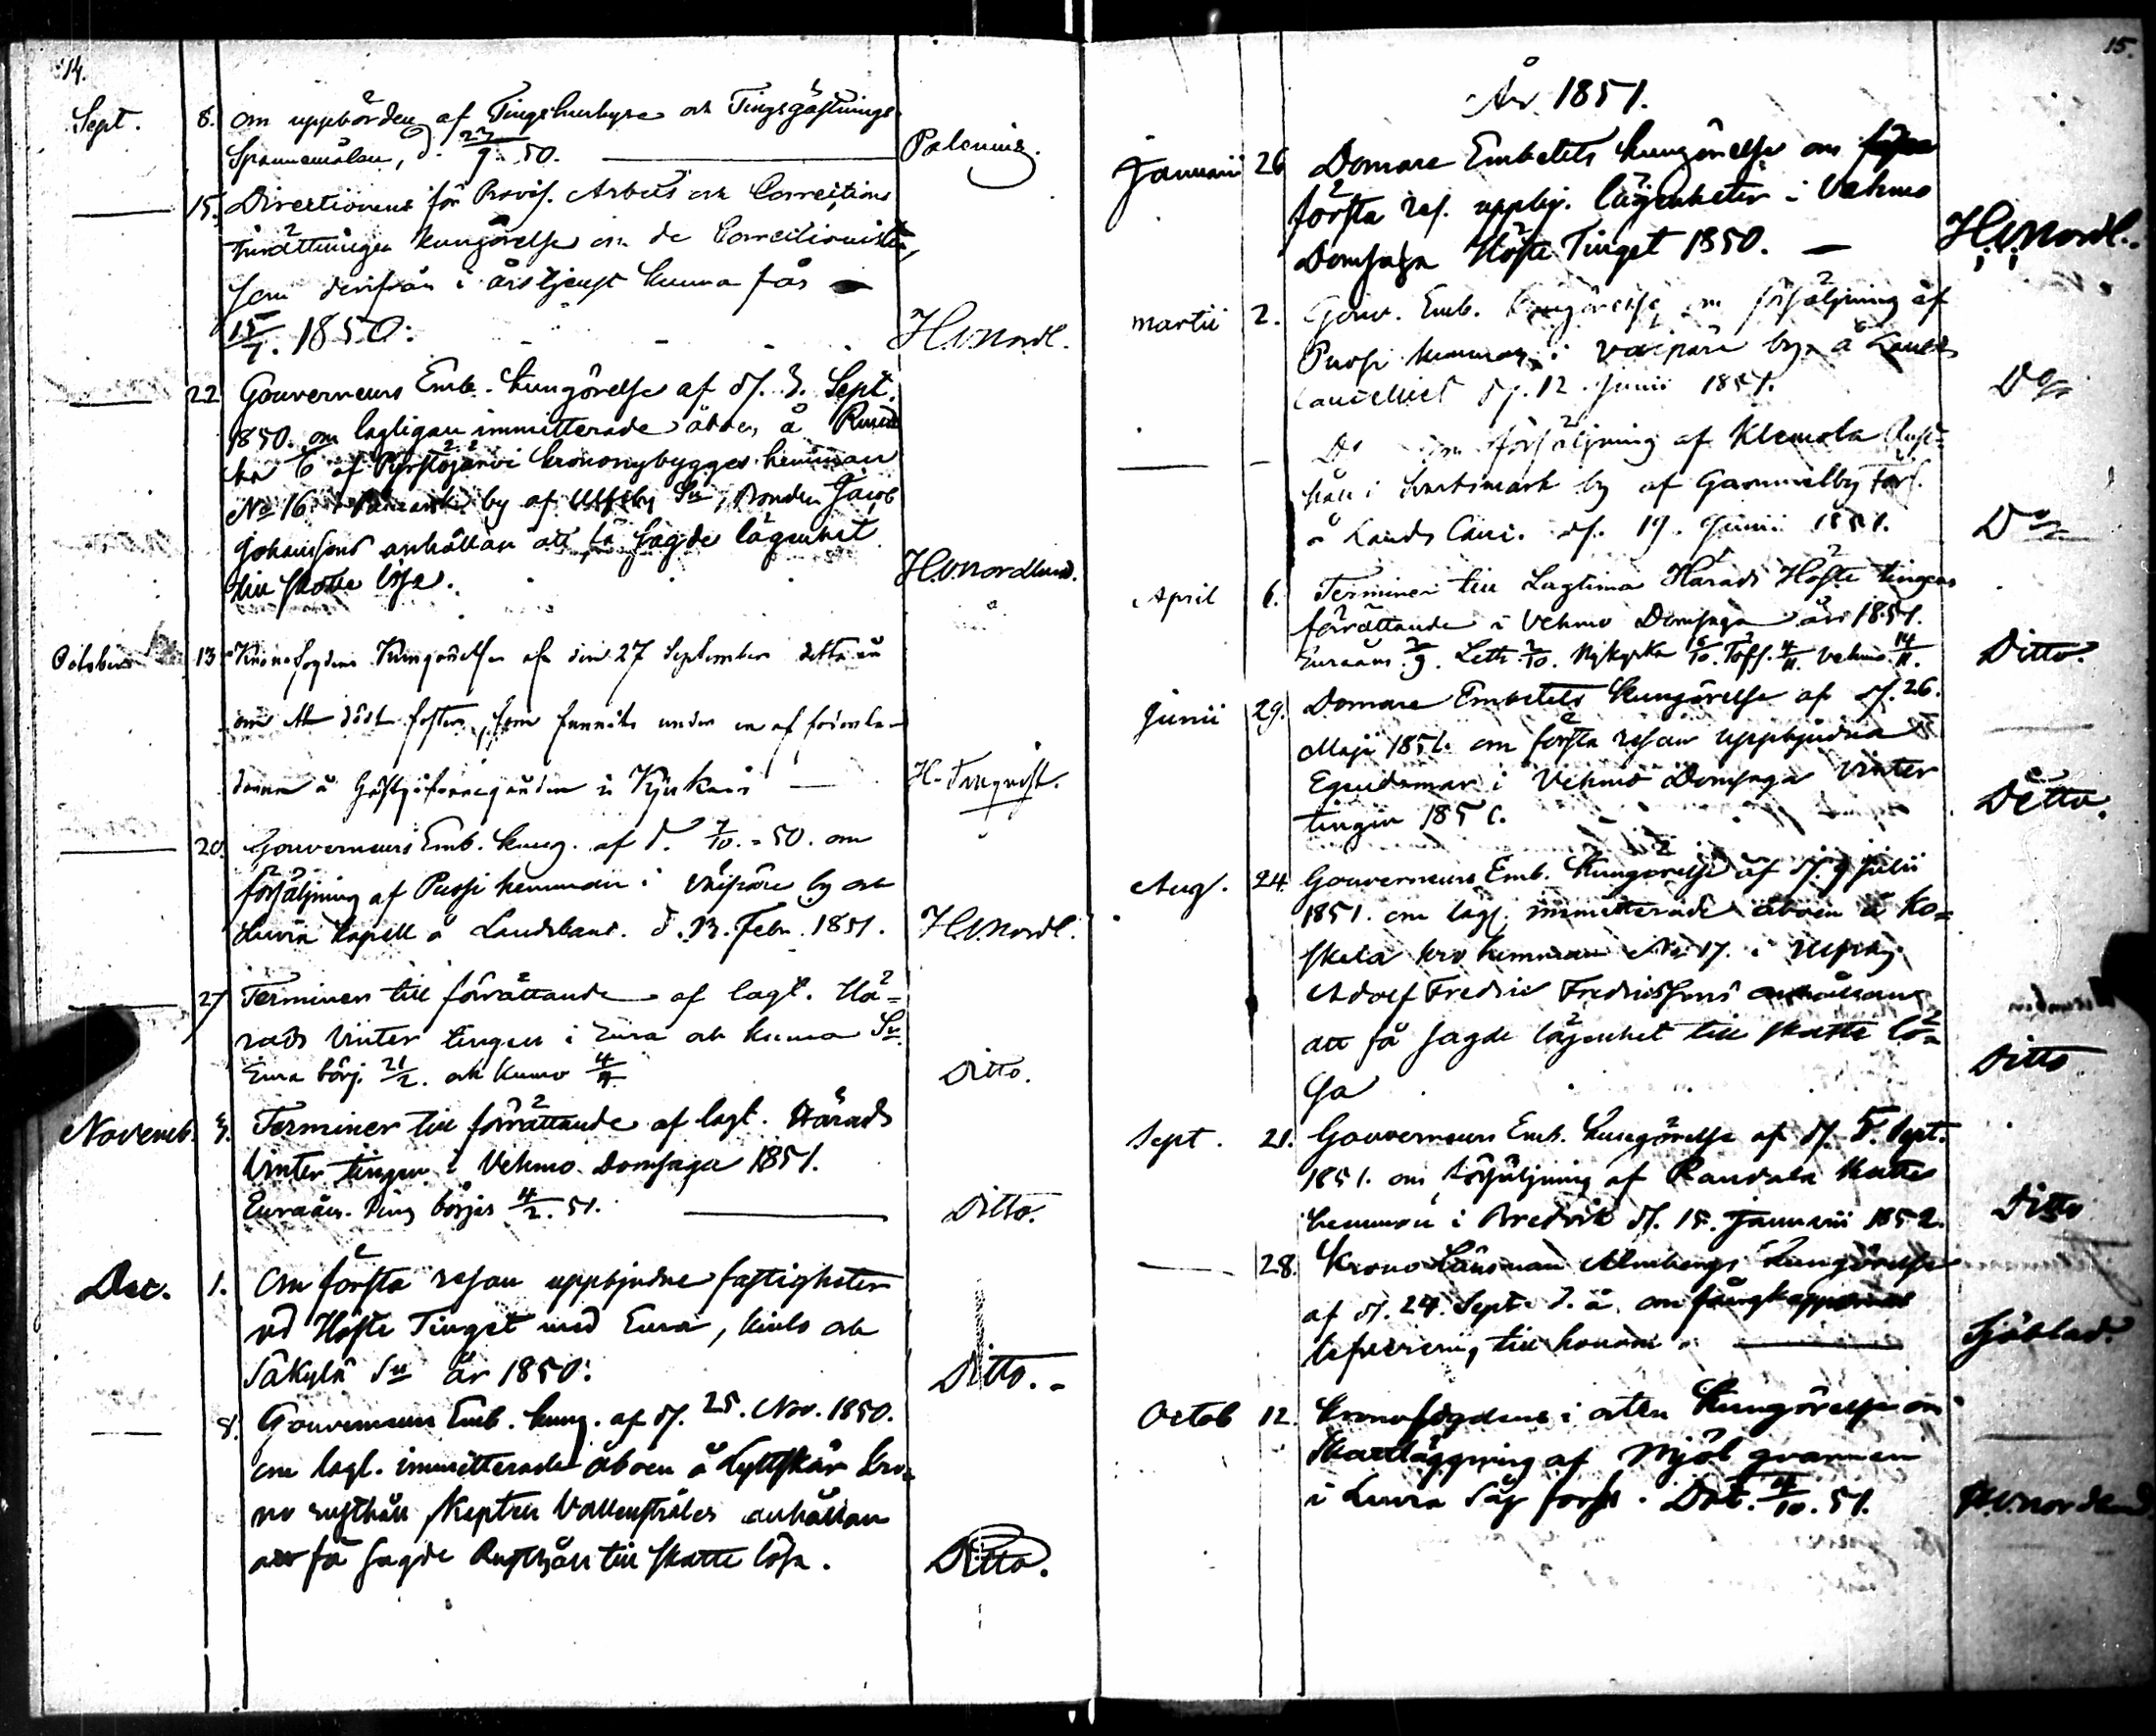 14.
Sept. 8. om uppbörden af Tingshushyra och Tingsgästnings
Spannemålen, d. 9. 50. Polenius.
15. Directionens för Provis. Arbets och Corrections
Inrättningen kungörelse om de Correctionister,
som derifrån i årstjenst kunna fås
1850. H.v.Nordl.
22 Gouverneurs Emb. Kungörelse af d. 3. Sept.
1850. om lagligen immitterade åboen å
af Pyssköjärvi krononybygges hemman
No 16 by af Ulfsby Sn, Bonden Jacob
Johanssons anhållan att få sagde lägenhet
till skatte lösa. H.v.Nordlund.
Octobris 13 Kronofogdens Kungörelse af den 27 September detta år
om ett dödt foster, som funnits under en af
å Gästgifvaregården i H. Tranqvist.
20. Gouverneurs Emb. kung. af d. 7/10. 50. om
försäljning af Pussi hemman i by och
Luvia kapell å Landskans. d. 13. Febr. 1851. H.v.Nordl.
27 Terminer till förrättande af lagt. Hä=
rads Vinter tingen i Eura och Kumo Sn.
Eura börj. 21/2. och Kumo Ditto.
Novemb. 3. Terminer till förrättande af lagt. Härads
Vinter tingen i Vehmo Domsaga 1851.
Euraåm. Ting börjes 4/2. 51. Ditto.
Dec. 1. Om första resan uppbjudne fastigheter
vid Höste Tinget med Eura, Kiulo och
Säkylä Sn år 1850. Ditto.
8. Gouverneurs Emb. kung. af d. 25. Nov. 1850.
om lagl. immitterade åboen å Lyttskär kro=
no rusthåll Skepten Vallenstråles anhållan
att få sagde Rusthåll till skatte lösa. Ditto.
15.
År 1851.
Januarii 26 Domare Embetets kungörelse om
första res. uppbj. lägenheter i Vehmo
Domsaga Höste Tinget 1850. H.v.Nordl.
Martii 2. Gouv. Emb. kungörelse om försäljning af
Pussi hemman i by å Lands
Cancelliet d. 12 Junii 1851. Do
Do om försäljning af Klemola Rust=
håll i by af Gammelby
å Lands Canc. d. 19. Junii 1851. Do
April 6. Terminer till Lagtima Härads Höste tingens
förrättande i Vehmo Domsaga år 1851.
Euraåm. Letti. Nykyrka Töfs. 4/11. Vehmo 14/11. Ditto.
Junii 29. Domare Embetets kungörelse af d. 26.
Maji 1851. om första resan uppbjudna
Egendomar i Vehmo Domsaga Vinter
tingen 1851. Ditto.
Aug. 24 Gouverneurs Emb. Kungörelse af d. 9 Julii
1851. om lagl. immitterade åboen å Ko=
skela kro hemman No 17. i
Adolf Fredric Fredricssons anhållan
att få sagde lägenhet till skatte lö=
sa Ditto
Sept. 21. Gouverneurs Emb. Kungörelse af d. 5. Sept.
1851. om försäljning af Randala skatte
hemman i Bredvik d. 15. Januarii 1852. Ditto
28. Krono Länsman Almbergs kungörelse
af d. 24. Sept. d. å. om fångkappornas
lefverering till honom. Sjöblad.
Octob 12. Kronofogdens i orten Kungörelse om
Skattläggning af Mjöl qvarnen
i Luvia Såg fors. Dat. 4/10. 51. H.v.Nordlund